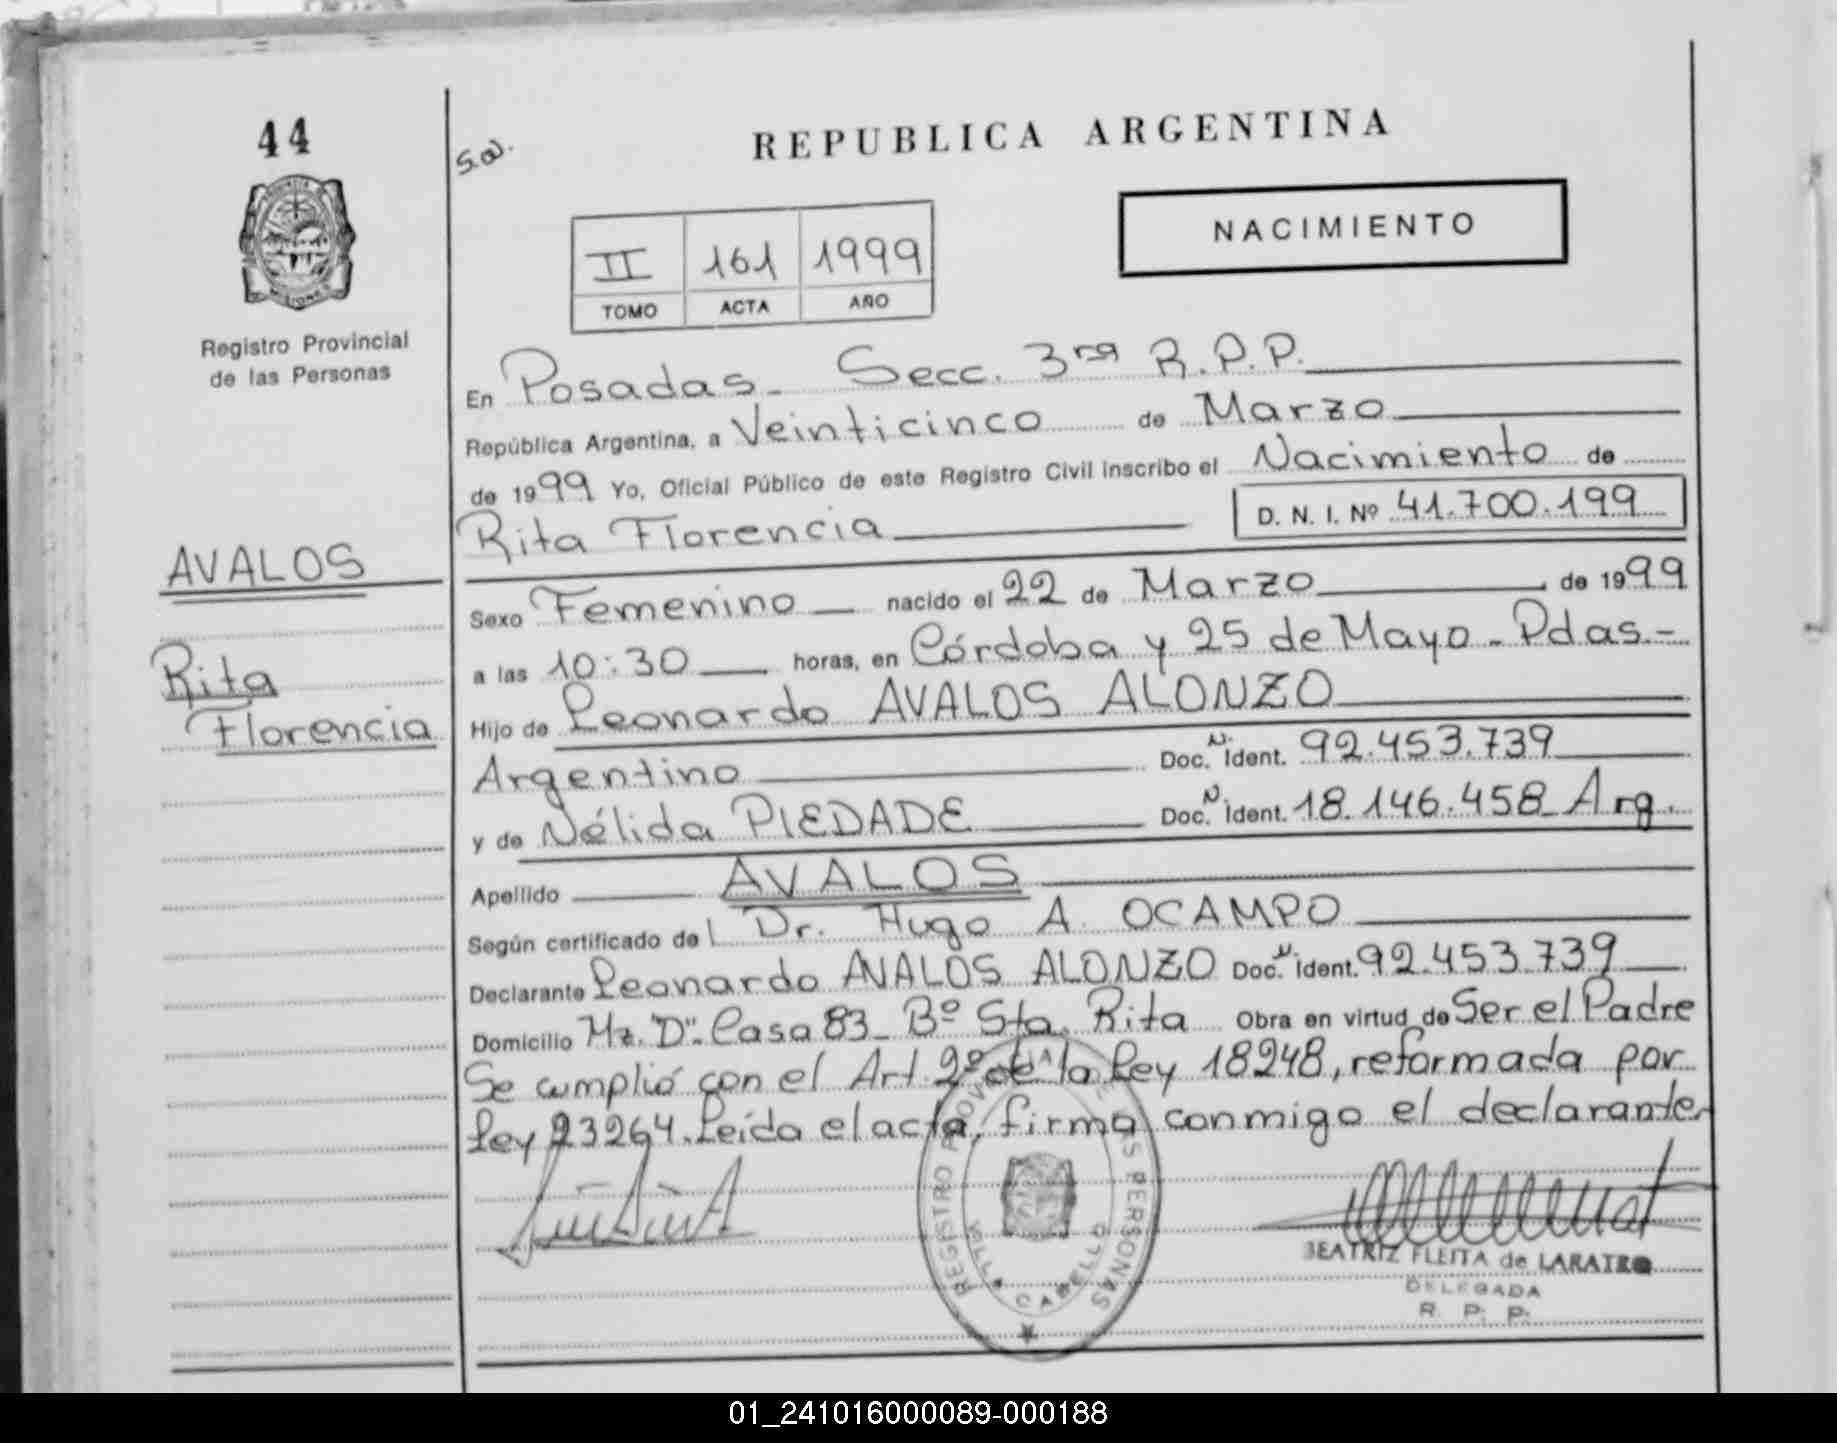 44
S.O.
REPUBLICA ARGENTINA
NACIMIENTO
II 161 1999
TOMO ACTA AÑO
Registro Provincial
de las Personas
AVALOS
Rita
Florencia
En Posadas - Secc. 3ra R.P.P.
República Argentina, a Veinticinco de Marzo
de 1999 Yo, Oficial Público de este Registro Civil inscribo el Nacimiento de
Rita Florencia D. N. I. Nº 41.700.199
Sexo Femenino nacido el 22 de Marzo de 1999
a las 10:30 horas, en Córdoba y 25 de Mayo - Pdas.-
Hijo de Leonardo AVALOS ALONZO
Argentino Doc. N. Ident. 92.453.739
y de Nélida PIEDADE Doc. N Ident. 18.146.458 Arg.
Apellido AVALOS
Según certificado del Dr. Hugo A. OCAMPO
Declarante Leonardo AVALOS ALONZO Doc. N Ident. 92.453.739
Domicilio Mz. "D". Casa 83 - Bº Sta. Rita Obra en virtud de Ser el Padre
Se cumplió con el Art. 2º de la Ley 18248, reformada por
Ley 23264. Leída el acta, firma conmigo el declarante.
REGISTRO PERSONAS
VILLA CABELLO
BEATRIZ FLEITA de
DELEGADA
R. P. P.
01_241016000089-000188